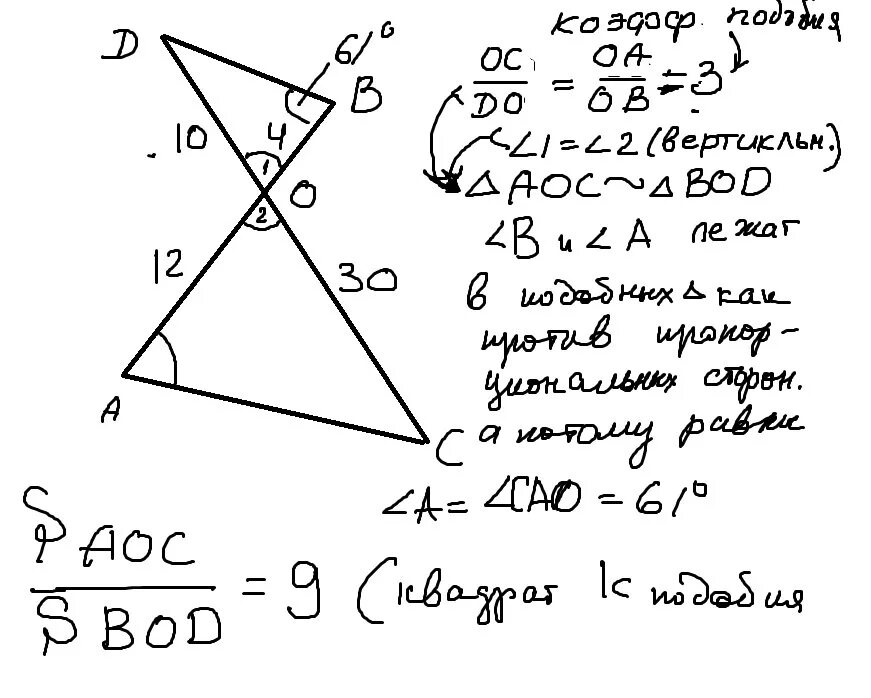 D
61°
B
10
4
1
O
2
12
30
A
C
коэфф. подобия
OC/DO = OA/OB = 3
∠1=∠2 (вертикльн.)
△AOC ~ △BOD
∠B и ∠A лежат
в подобных △ как
против пропор-
циональных сторон.
а потому равны
∠A = ∠CAO = 61°
S AOC / S BOD = 9 (квадрат k подобия